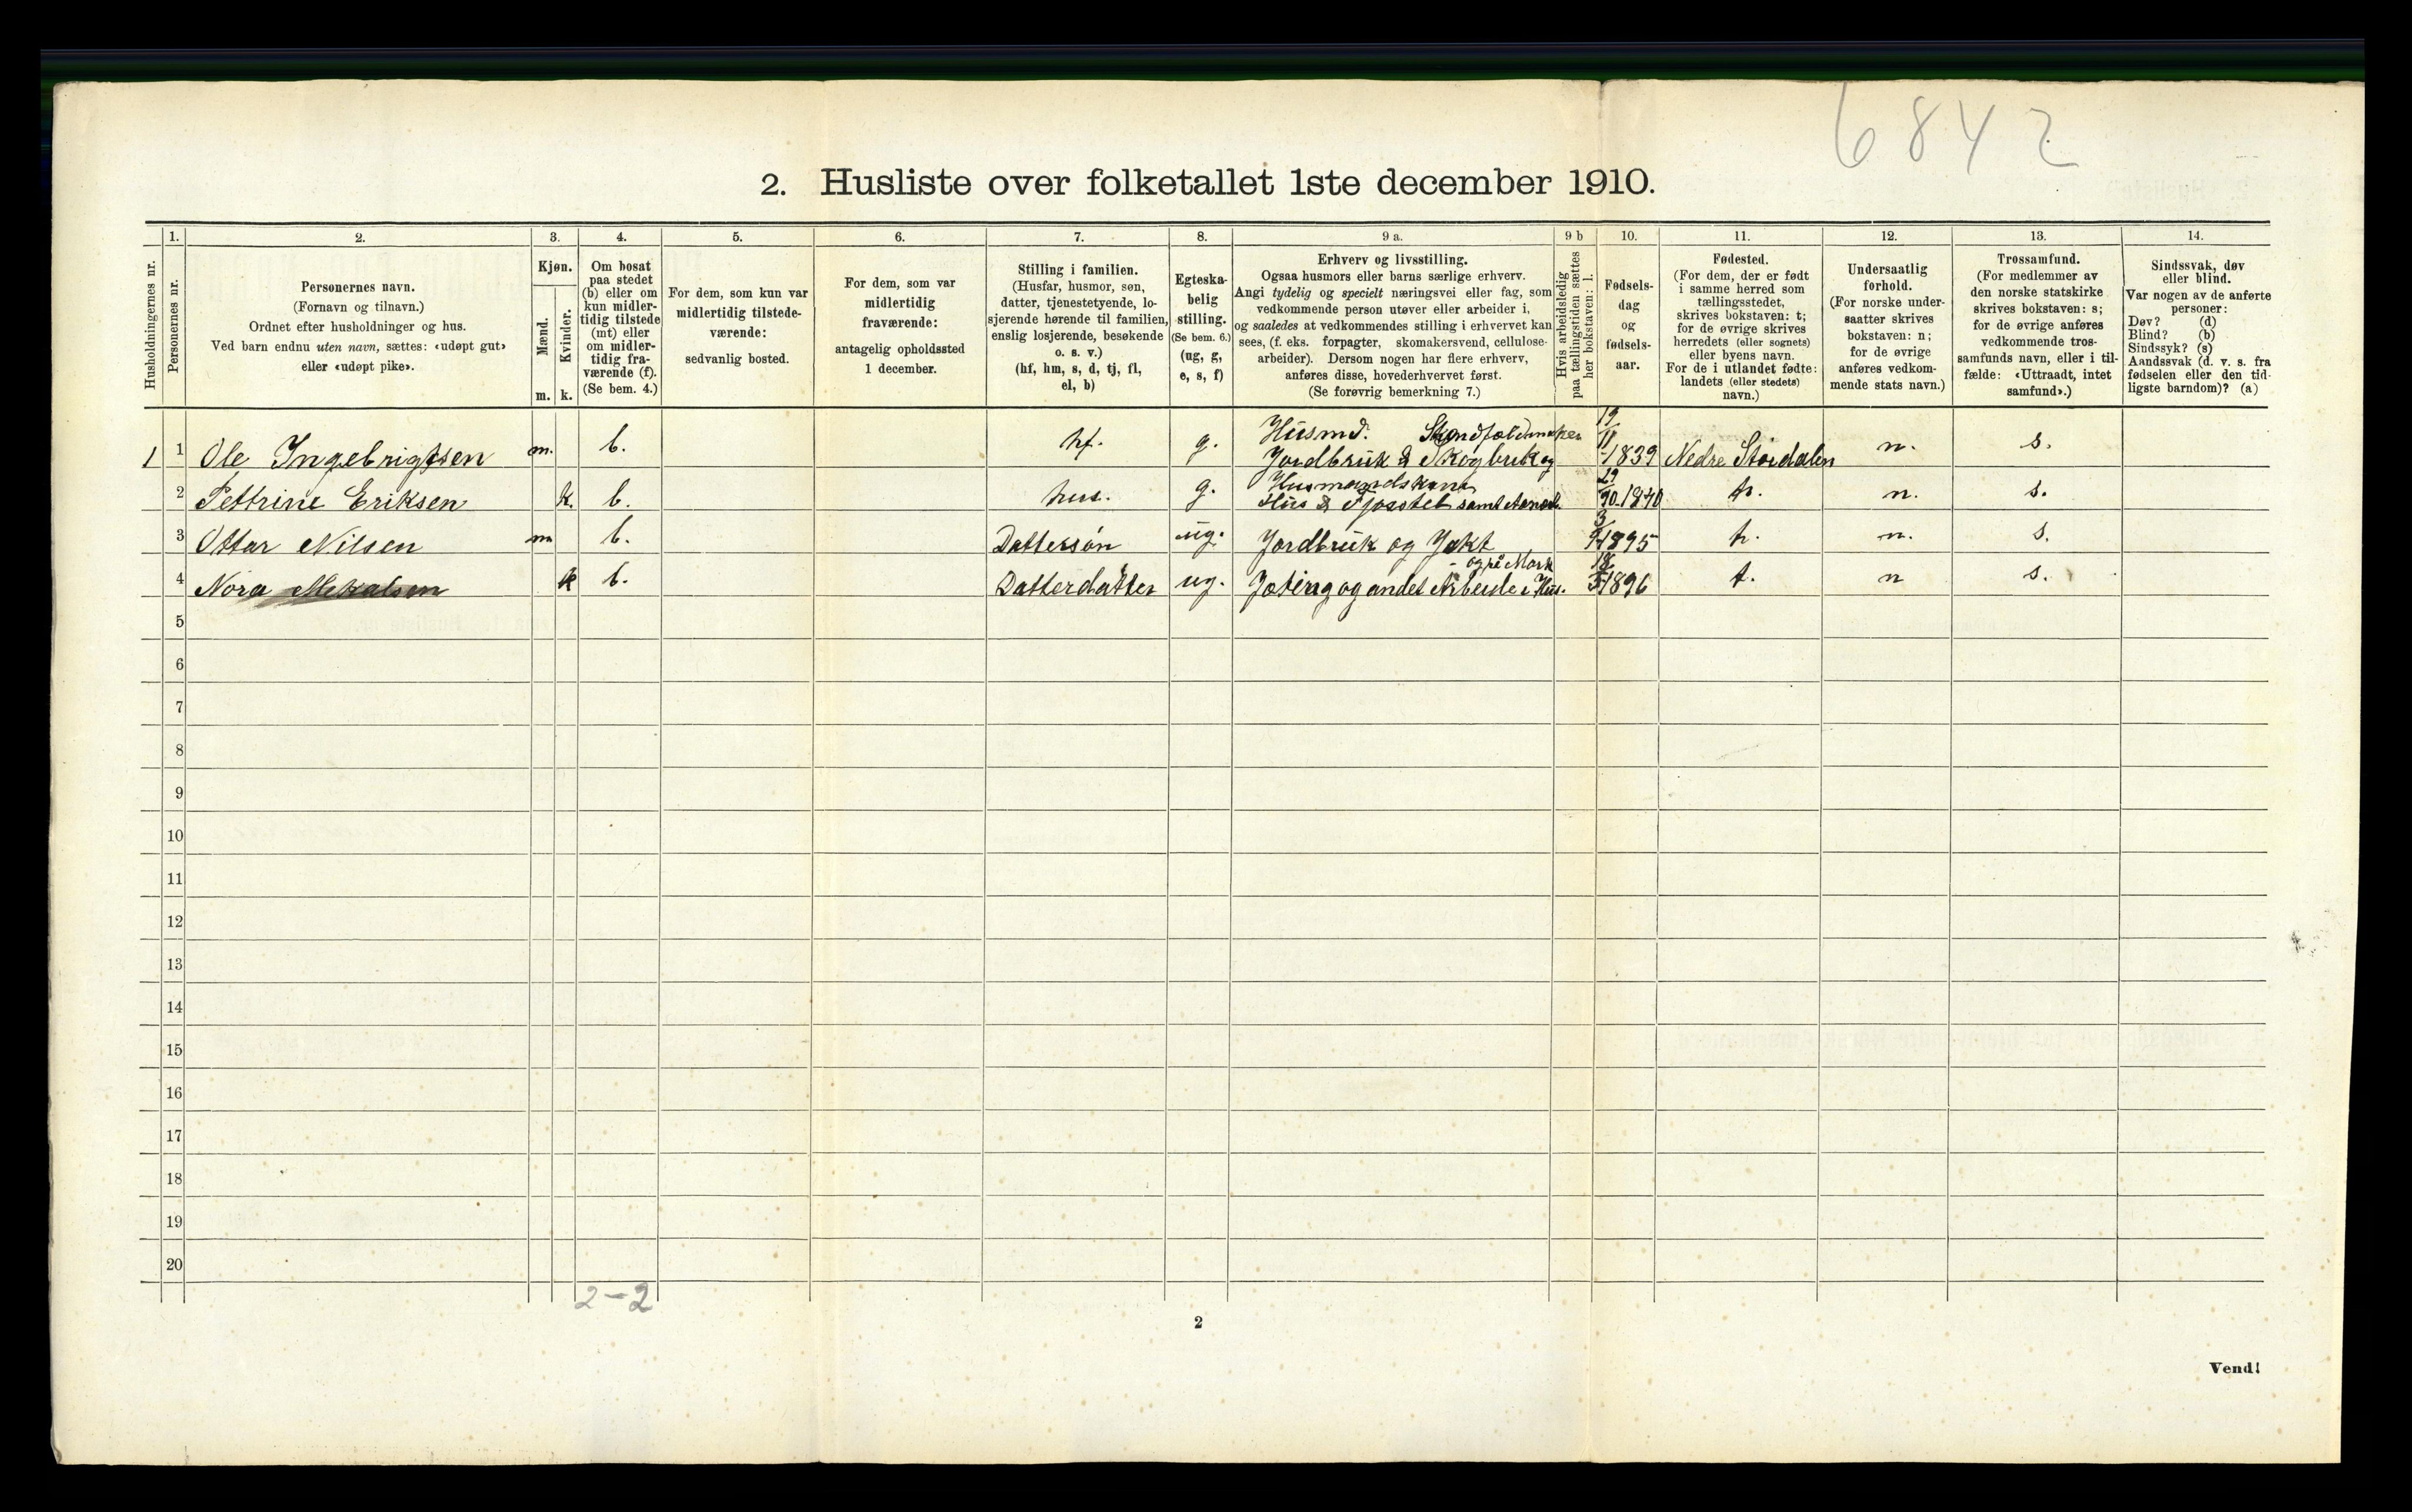 6842
2. Husliste over folketallet 1ste december 1910.
1. 2. 3. 4. 5. 6. 7. 8. 9 a. 9 b 10. 11. 12. 13. 14.
Husholdningernes nr.
Personernes nr.
Personernes navn.
(Fornavn og tilnavn.)
Ordnet efter husholdninger og hus.
Ved barn endnu uten navn, sættes: «udøpt gut»
eller «udøpt pike».
Kjøn.
Mænd.
Kvinder.
m. k.
Om bosat
paa stedet
(b) eller om
kun midler-
tidig tilstede
(mt) eller
om midler-
tidig fra-
værende (f).
(Se bem. 4.)
For dem, som kun var
midlertidig tilstede-
værende:
sedvanlig bosted.
For dem, som var
midlertidig
fraværende:
antagelig opholdssted
1 december.
Stilling i familien.
(Husfar, husmor, søn,
datter, tjenestetyende, lo-
sjerende hørende til familien,
enslig losjerende, besøkende
o. s. v.)
(hf, hm, s, d, tj, fl,
el, b)
Egteska-
belig
stilling.
(Se bem. 6.)
(ug, g,
e, s, f)
Erhverv og livsstilling.
Ogsaa husmors eller barns særlige erhverv.
Angi tydelig og specielt næringsvei eller fag, som
vedkommende person utøver eller arbeider i,
og saaledes at vedkommendes stilling i erhvervet kan
sees, (f. eks. forpagter, skomakersvend, cellulose-
arbeider). Dersom nogen har flere erhverv,
anføres disse, hovederhvervet først.
(Se forøvrig bemerkning 7.)
Hvis arbeidsledig
paa tællingstiden sættes
her bokstaven: l.
Fødsels-
dag
og
fødsels-
aar.
Fødested.
(For dem, der er født
i samme herred som
tællingsstedet,
skrives bokstaven: t;
for de øvrige skrives
herredets (eller sognets)
eller byens navn.
For de i utlandet fødte:
landets (eller stedets)
navn.)
Undersaatlig
forhold.
(For norske under-
saatter skrives
bokstaven: n;
for de øvrige
anføres vedkom-
mende stats navn.)
Trossamfund.
(For medlemmer av
den norske statskirke
skrives bokstaven: s;
for de øvrige anføres
vedkommende tros-
samfunds navn, eller i til-
fælde: «Uttraadt, intet
samfund».)
Sindssvak, døv
eller blind.
Var nogen av de anførte
personer:
Døv? (d)
Blind? (b)
Sindssyk? (s)
Aandssvak (d. v. s. fra
fødselen eller den tid-
ligste barndom)? (a)
Husmd.
1 1 Ole Ingebrigtsen m. b. hf. g. Jordbruk & Skogbruk og 19/11 1839 Nedre Stordalen n. s.
Husmandskone
2 Pettrine Eriksen k. b. hus. g. Hus & Fjøsstel samt 29/10.1840 t. n. s.
3 Ottar Nilsen m b. Dattersøn ug. Jordbruk og Jakt 3/9 1895 t. n. s.
og på Mark
4 Nora Mekalsen k b. Datterdatter ug. Jæting og andet Arbeide i Hus. 18/5 1896 t. n s.
5
6
7
8
9
10
11
12
13
14
15
16
17
18
19
20
2-2
2
Vend!